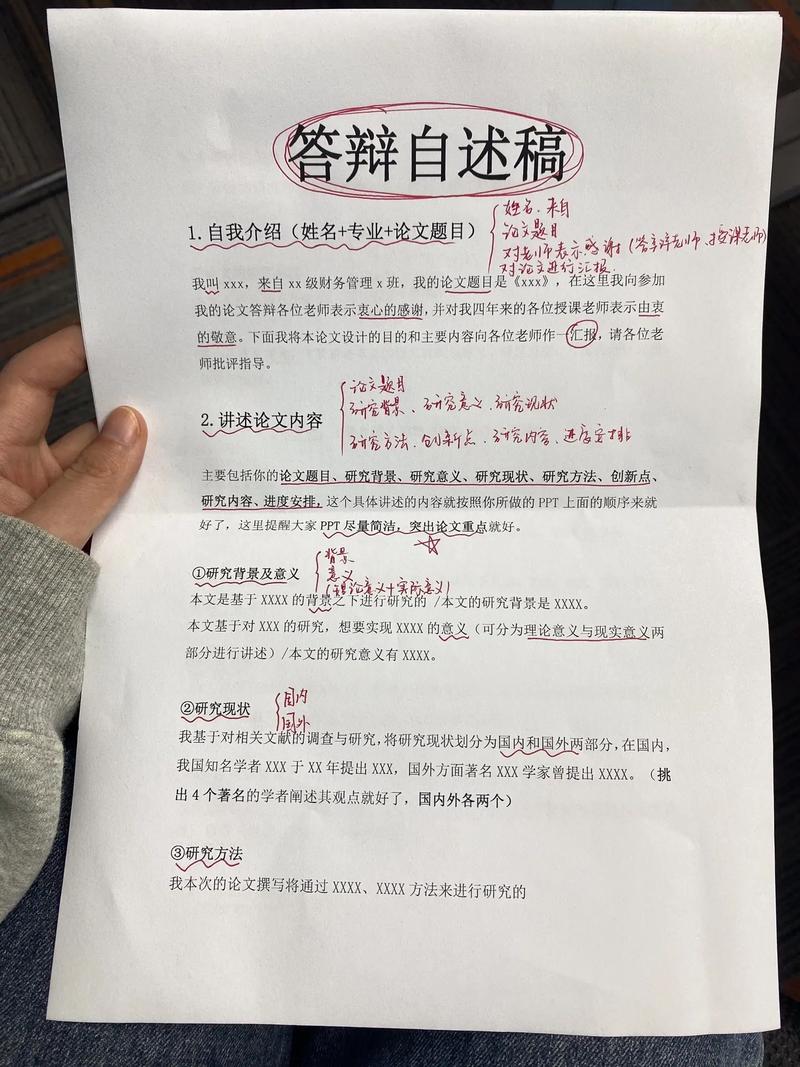 答辩自述稿
1.自我介绍（姓名+专业+论文题目）
姓名、来自
论文题目
对老师表示感谢(答辩老师、授课老师)
对论文进行汇报.
我叫 xxx，来自 xx 级财务管理 x 班，我的论文题目是《xxx》，在这里我向参加
我的论文答辩各位老师表示衷心的感谢，并对我四年来的各位授课老师表示由衷
的敬意。下面我将本论文设计的目的和主要内容向各位老师作一汇报，请各位老
师批评指导。
2.讲述论文内容
论文题目
研究背景、研究意义、研究现状
研究方法、创新点、研究内容、进度安排
主要包括你的论文题目、研究背景、研究意义、研究现状、研究方法、创新点、
研究内容、进度安排，这个具体讲述的内容就按照你所做的 PPT 上面的顺序来就
好了，这里提醒大家 PPT 尽量简洁，突出论文重点就好。
①研究背景及意义
背景
意义
(理论意义+实际意义)
本文是基于 XXXX 的背景之下进行研究的 /本文的研究背景是 XXXX。
本文基于对 XXX 的研究，想要实现 XXXX 的意义（可分为理论意义与现实意义两
部分进行讲述）/本文的研究意义有 XXXX。
②研究现状
国内
国外
我基于对相关文献的调查与研究，将研究现状划分为国内和国外两部分，在国内，
我国知名学者 XXX 于 XX 年提出 XXX，国外方面著名 XXX 学家曾提出 XXXX。（挑
出 4 个著名的学者阐述其观点就好了，国内外各两个）
③研究方法
我本次的论文撰写将通过 XXXX、XXXX 方法来进行研究的